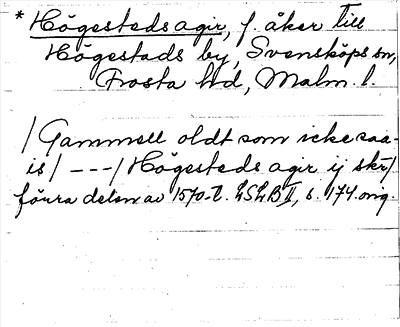 * Högesteds agir, f. åker till
Högestads by, Svensköps sn,
Frosta hd, Malm. l.
/Gammell oldt som icke saa-
is/ - - - / Högesteds agir ij skr/
förra delen av 1570-t. LSLB II, s. 174. orig.